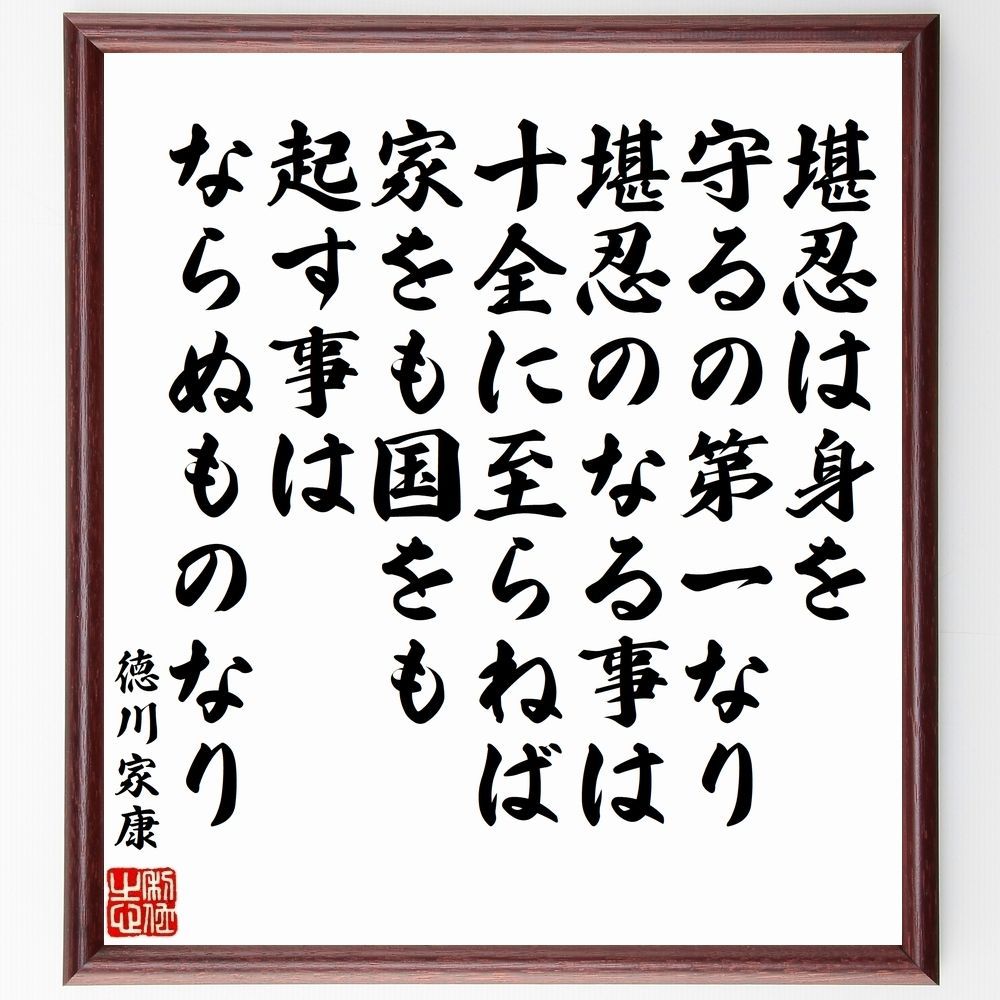 堪忍は身を
守るの第一なり
堪忍のなる事は
十全に至らねば
家をも国をも
起す事は
ならぬものなり
徳川家康